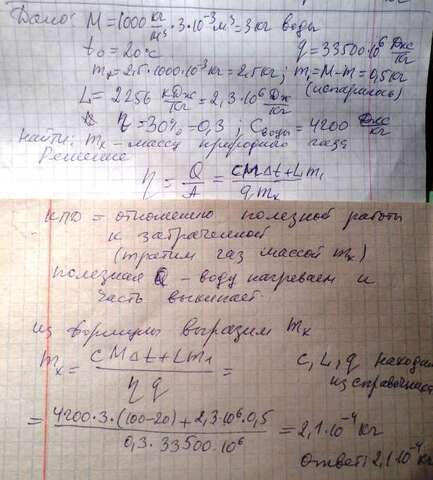 Дано: M = 1000 кг/м³ · 3 · 10⁻³ м³ = 3 кг воды
t₀ = 20°C q = 33500·10⁶ Дж/кг
m = 2,5 · 1000 · 10⁻³ кг = 2,5 кг; m₁ = M - m = 0,5 кг
(испарилось)
L = 2256 кДж/кг = 2,3·10⁶ Дж/кг
η = 30% = 0,3; Cводы = 4200 Дж/кг
Найти: mₓ - массу природного газа
Решение
η = Q/A = (cMΔt + Lm₁)/(q mₓ)
КПД = отношению полезной работы
к затраченной
(тратим газ массой mₓ)
полезная Q - воду нагреваем и
часть выкипает
из формулы выразим mₓ
mₓ = (cMΔt + Lm₁)/(η q) = c, L, q находим
из справочника
= (4200·3·(100-20) + 2,3·10⁶·0,5)/(0,3·33500·10⁶) = 2,1·10⁻⁴ кг
Ответ: 2,1·10⁻⁴ кг